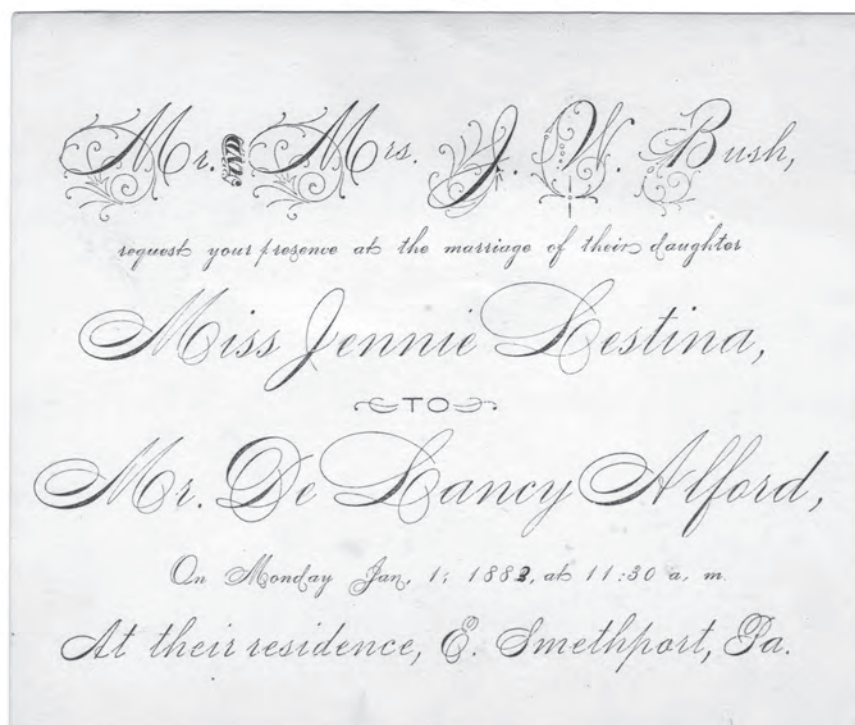 Mr. and Mrs. J. W. Bush,
request your presence at the marriage of their daughter
Miss Jennie Lestina,
TO
Mr. De Lancy Alford,
On Monday Jan. 1, 1883, at 11:30 a. m.
At their residence, E. Smethport, Pa.